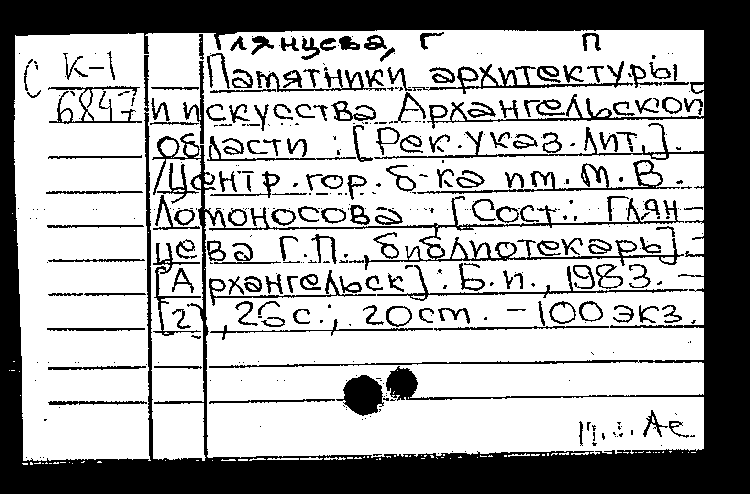 Глянцева, Г П
С К-1
6847
Памятники архитектуры
и искусства Архангельской
области : [Рек. указ. лит.].
/Центр. гор. б-ка им. М. В.
Ломоносова ; [Сост.: Глян-
цева Г. П., библиотекарь]. -
[Архангельск] : Б. и., 1983. -
[2], 26 с. ; 20 см. - 100 экз.